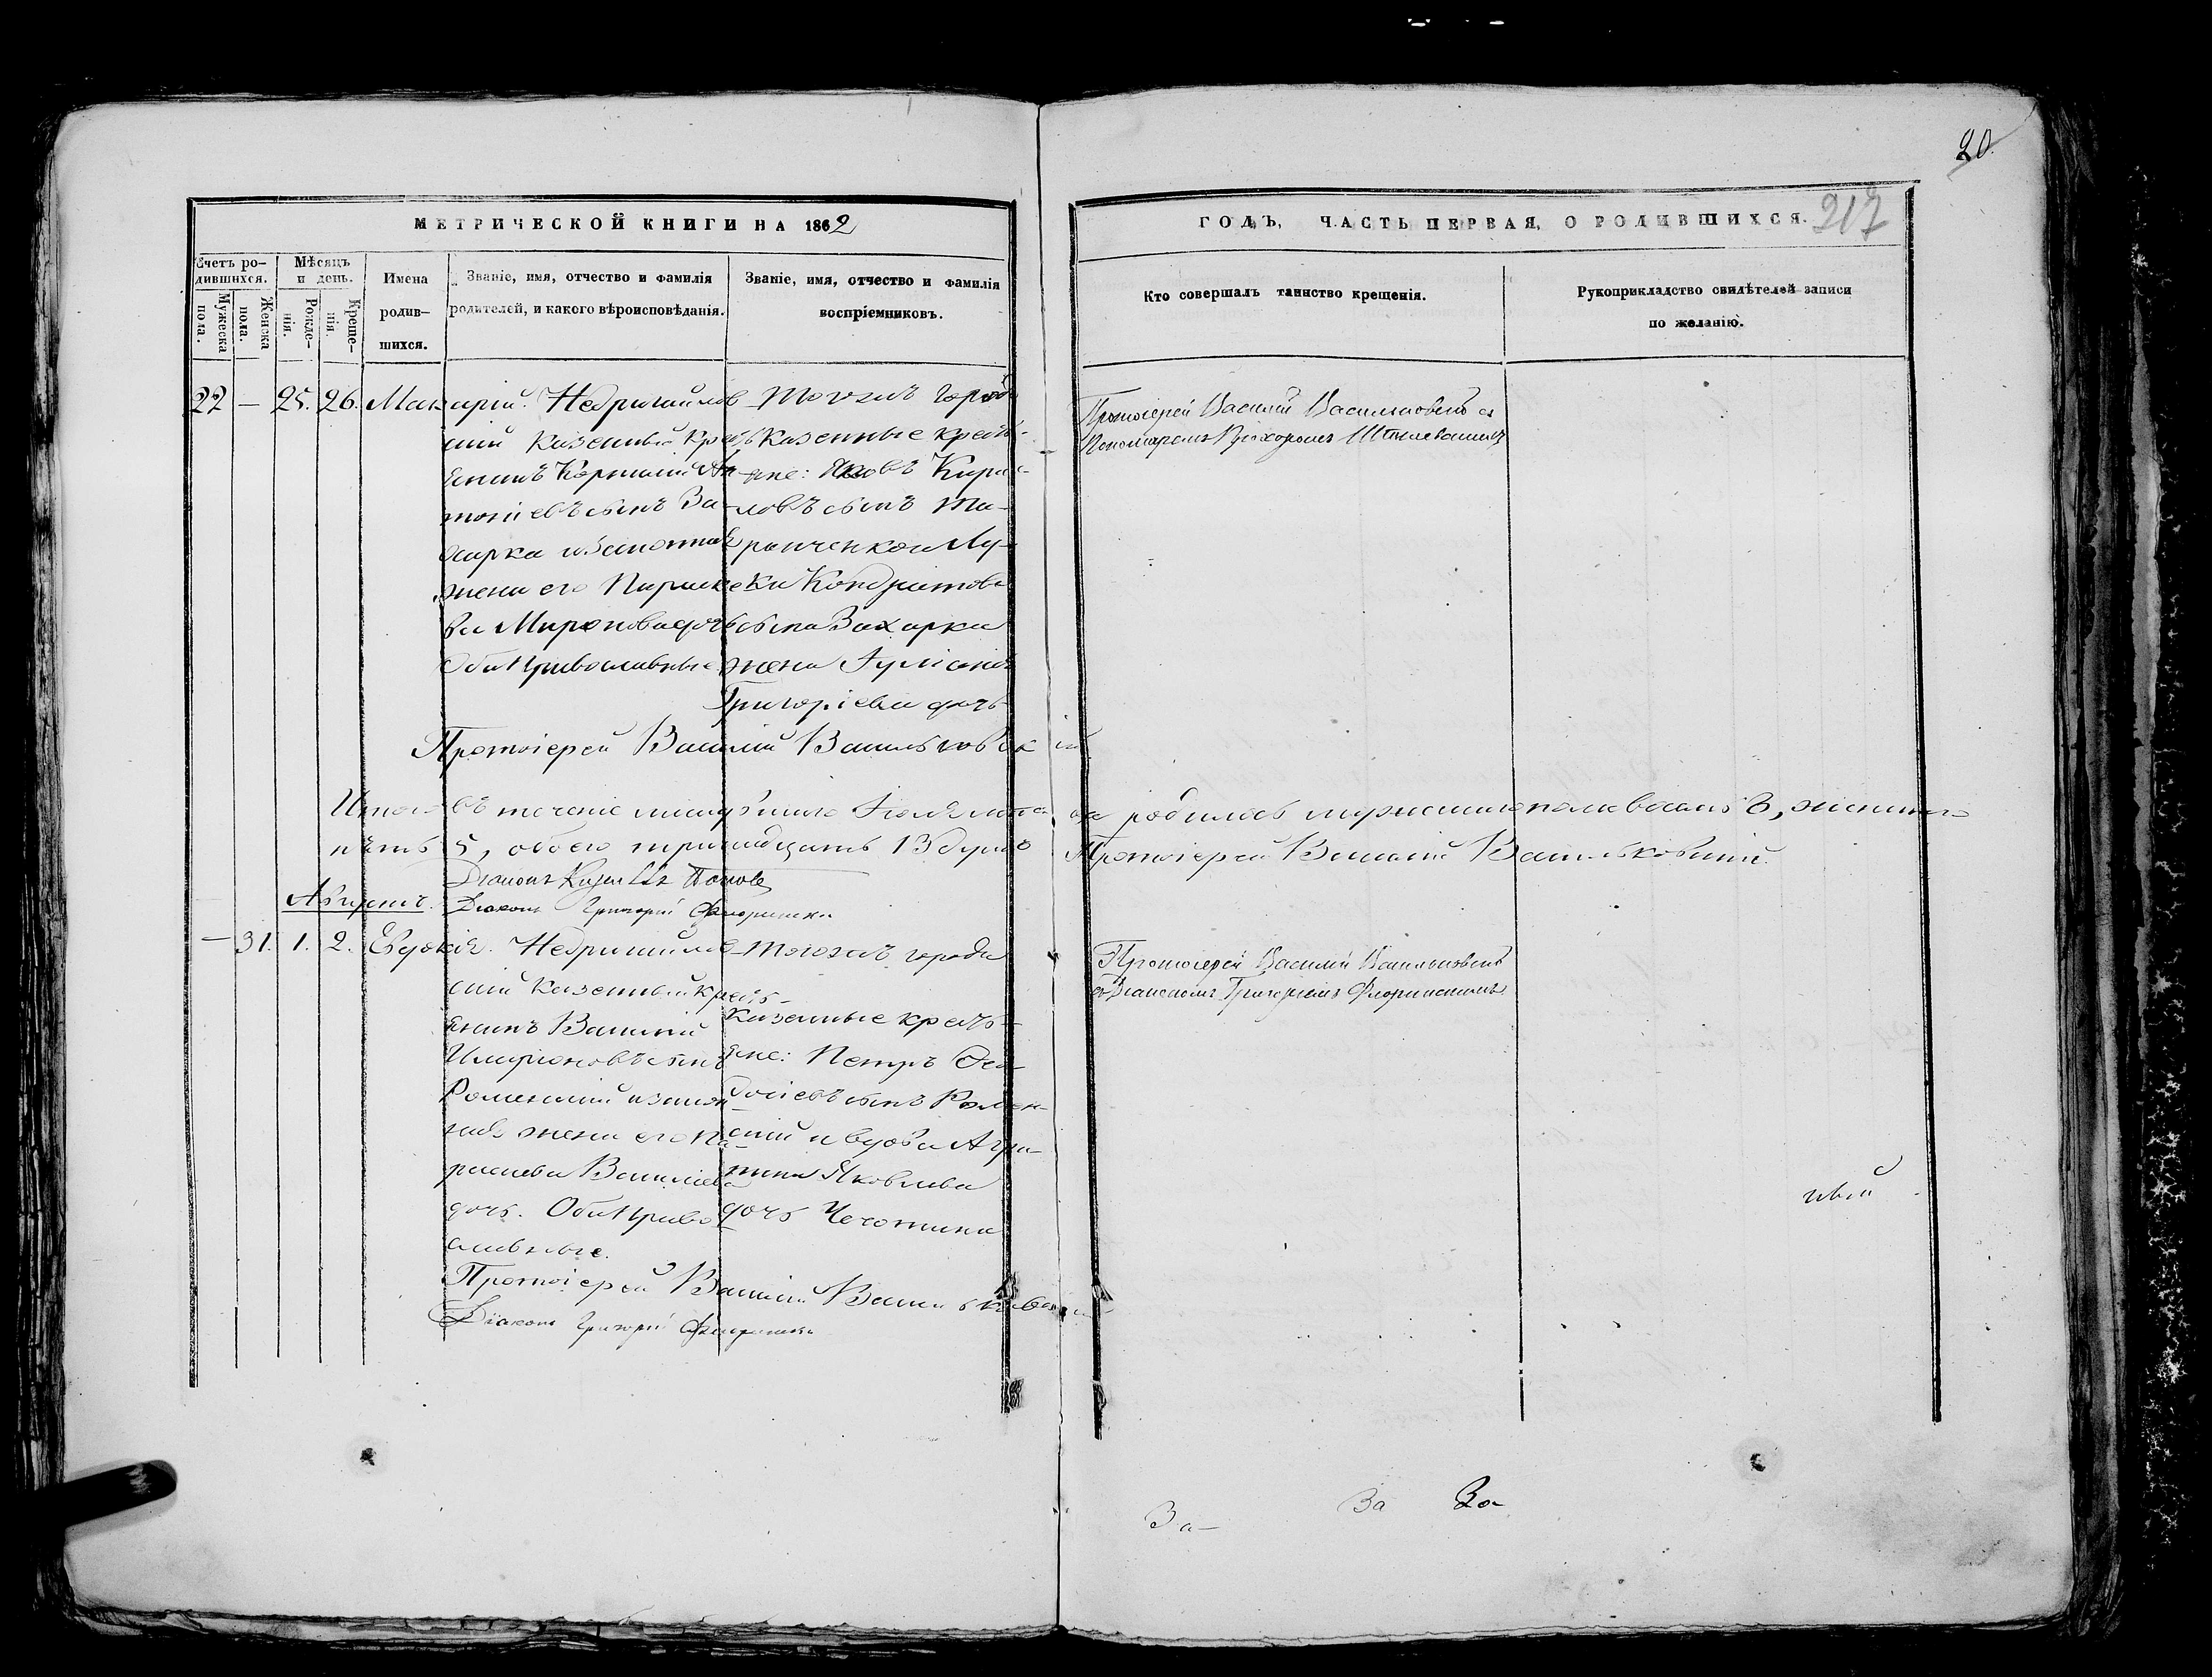 20.
МЕТРИЧЕСКОЙ КНИГИ НА 1862
ГОДЪ, ЧАСТЬ ПЕРВАЯ, О РОДИВШИХСЯ.
217
Счетъ ро-
дившихся.
Мужеска
пола.
Женска
пола.
Мѣсяцъ
и день.
Рожде-
нія.
Креще-
нія.
Имена
родив-
шихся.
Званіе, имя, отчество и фамилія
родителей, и какого вѣроисповѣданія.
Званіе, имя, отчество и фамилія
воспріемниковъ.
Кто совершалъ таинство крещенія.
Рукоприкладство свидѣтелей записи
по желанію.
22 — 25. 26. Макарій.
Недригайлов
скій казенный кресть
янинъ
сынъ За
харка и законная
жена его Параске
ва Миронова дочь
Оба православные
Тогожъ города
казенные крестъ-
яне: Яковъ Кири-
ловъ сынъ
Кондратова
сына Захарка
жена Іуліанія
Григоріева дочь
Протоіерей Василій Васильковскій
Протоіерей Василій Васильковскій съ
Пономаремъ
Итого въ теченіе мѣсяца Іюля родилось мужеска пола восемь 8, женска
пять 5, обоего тринадцать 13 душъ Протоіерей Василій Васильковскій.
Діаконъ Попов
Августъ. Діаконъ Григорій Флоринскій
— 31. 1. 2. Евдокія.
Недригайлов
скій казенный кресть-
янинъ Василій
Иларіоновъ сынъ
Роменскій и закон
ная жена его Па-
раскева Василіева
дочь. Оба право
славные.
Тогожъ города
казенные кресть-
яне: Петръ Ѳео-
досіевъ сынъ Ромен-
скій и вдова Агри-
пина Яковлева
дочь
Протоіерей Василій Васильковскій
съ Діакономъ Григоріемъ Флоринскимъ.
Протоіерей Василій Васильковскій
Діаконъ Григорій Флоринскій
За-
За